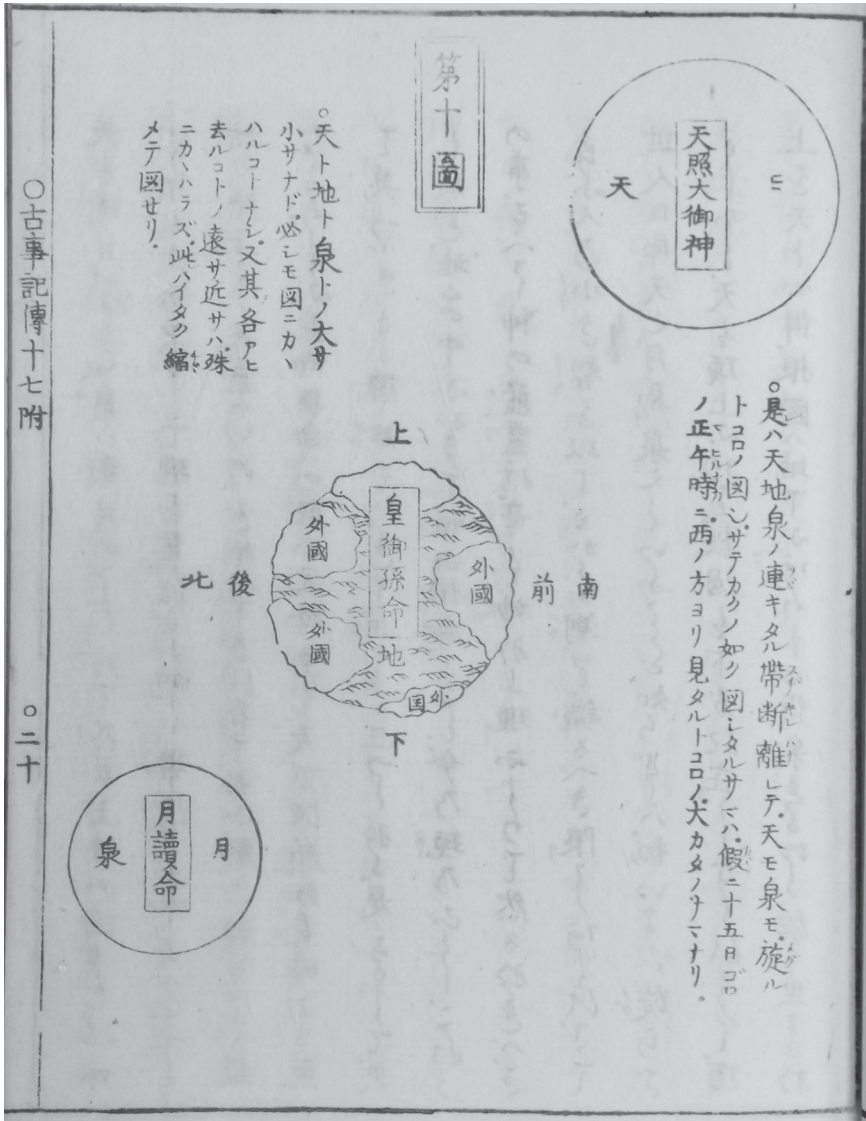 日
天照大御神
天
第十圖
○是ハ天地泉ノ連キタル帶斷離レテ。天モ泉モ。旋ル
トコロノ図ゾ。サテカクノ如ク図シタルサマハ。假ニ十五日ゴロ
ノ正午時ニ西ノ方ヨリ見タルトコロノ。大カタノサマナリ。
○天ト地ト泉トノ大サ
小サナド。必シモ図ニカヽ
ハルコトナシ。又其各アヒ
去ルコトノ遠サ近サハ。殊
ニカヽハラズ。此ハイタク縮
メテ図セリ。
上
南 前
後 北
下
皇御孫命
地
外國
外國
外國
外国
月
月讀命
泉
○古事記傳十七附
○二十